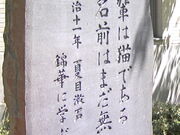 輩は猫である
名前はまだ無
治十一年 夏目漱石
錦華に学ぶ